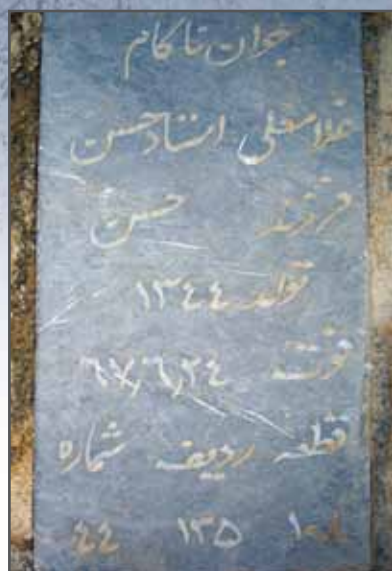 جوان ناکام
غلامعلی استاد حسن
فرزند حسن
تولد ۱۳۴۴
فوت ۶۷,۶,۲۴
قطعه ردیف شماره
۱۳۵ ۴۴